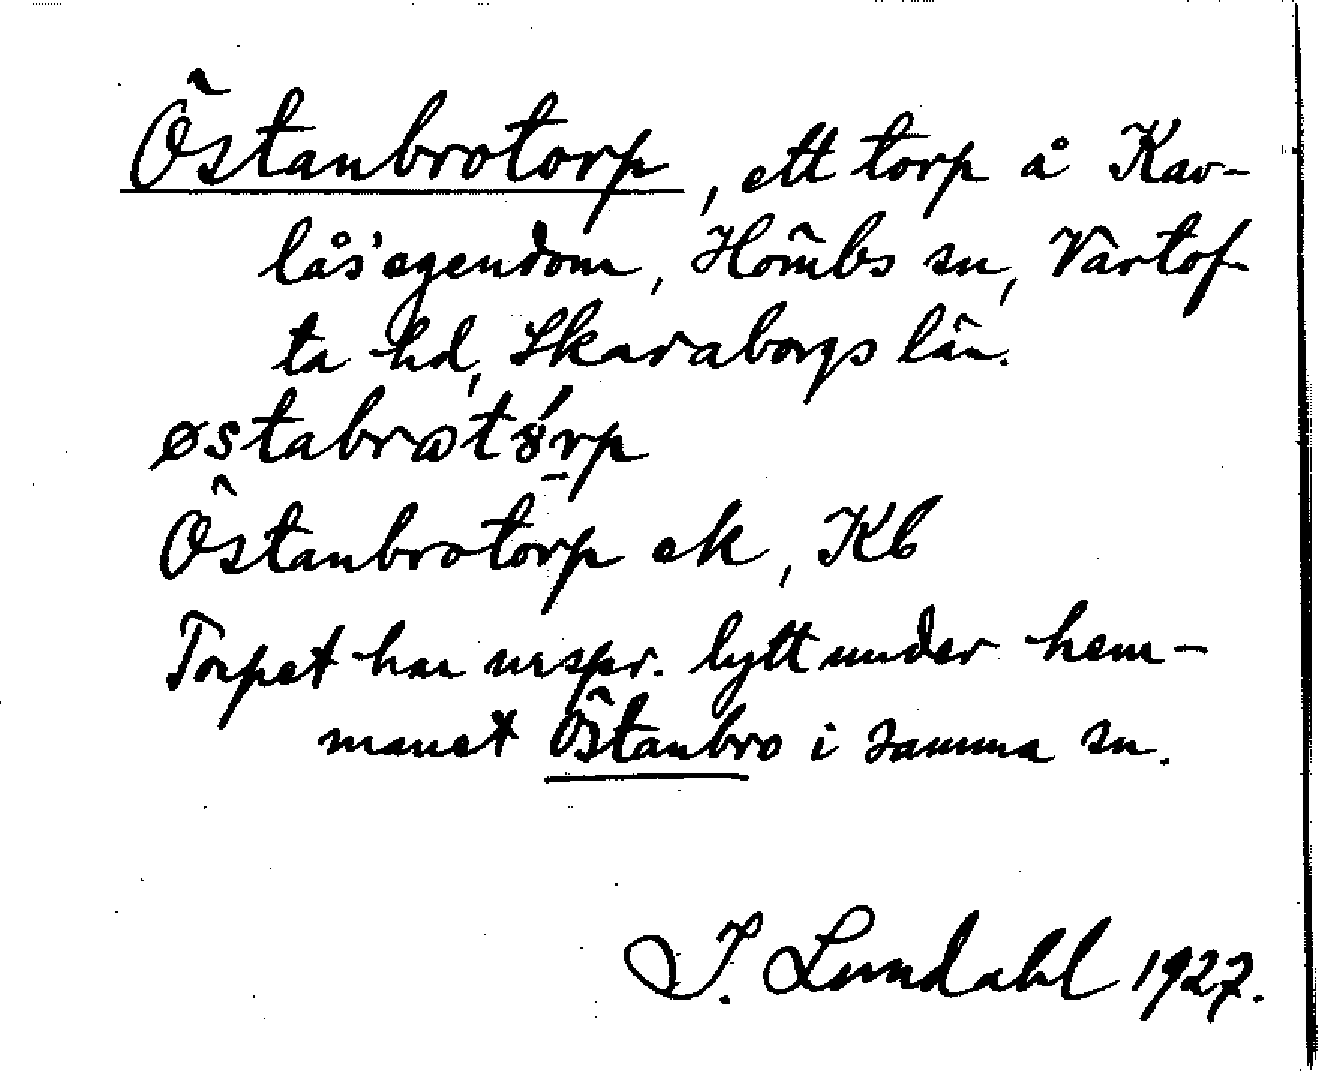 Östanbrotorp, ett torp å Kav-
lås' egendom, Hömbs sn, Vartof-
ta hd, Skaraborgs län.
Östanbrotorp ek, Kb
Torpet har urspr. lytt under hem-
manet Östanbro i samma sn.
I. Lundahl 1927.